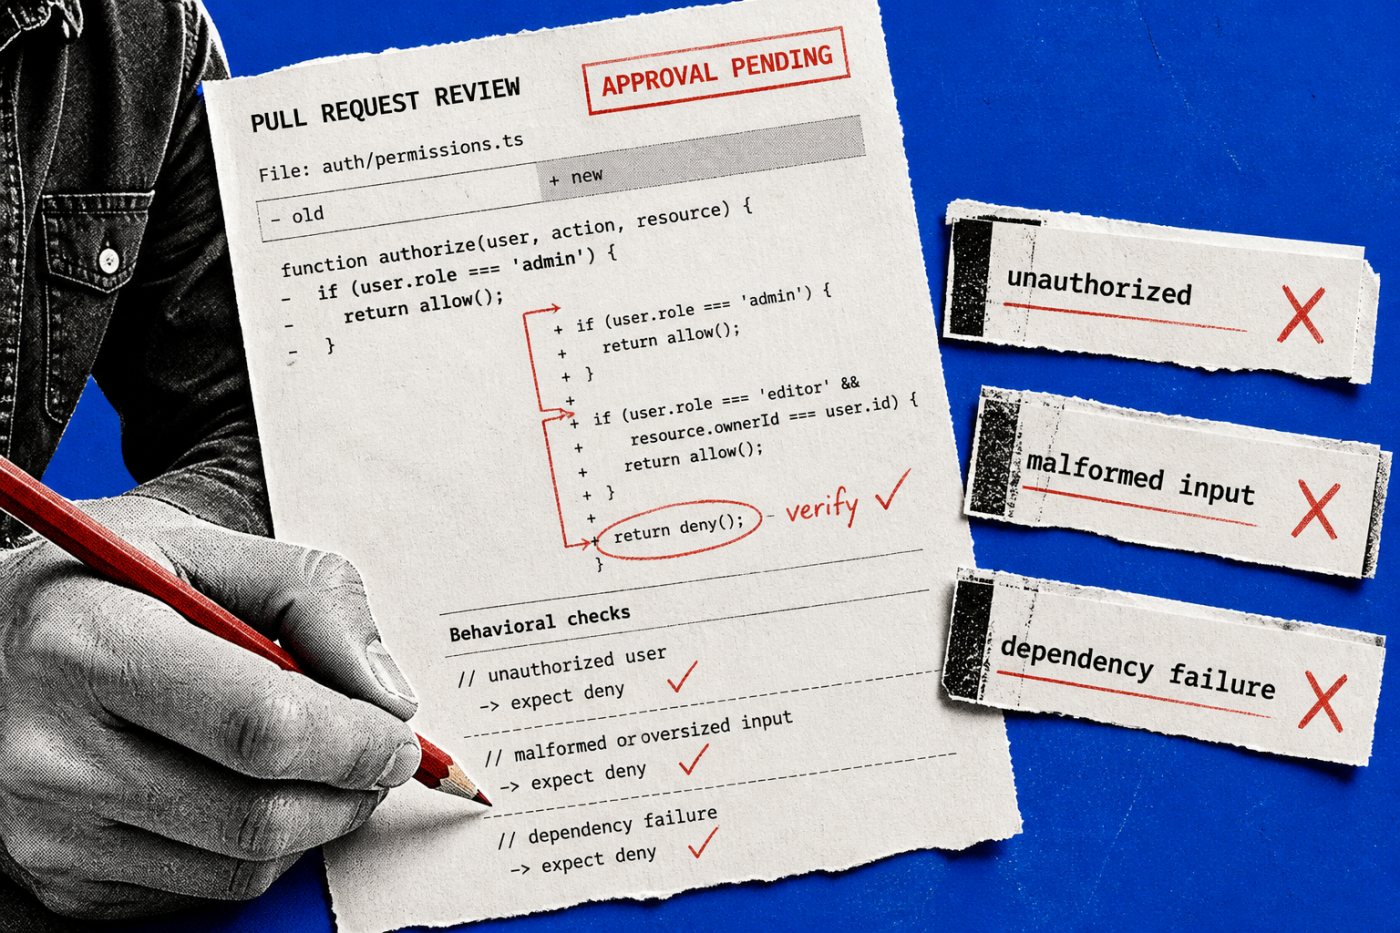 PULL REQUEST REVIEW
APPROVAL PENDING
File: auth/permissions.ts
- old
+ new
function authorize(user, action, resource) {
- if (user.role === 'admin') {
- return allow();
- }
+ if (user.role === 'admin') {
+ return allow();
+ }
+
+ if (user.role === 'editor' &&
+ resource.ownerId === user.id) {
+ return allow();
+ }
+
+ return deny(); - verify ✓
}
Behavioral checks
// unauthorized user
-> expect deny ✓
// malformed or oversized input
-> expect deny ✓
// dependency failure
-> expect deny ✓
unauthorized X
malformed input X
dependency failure X